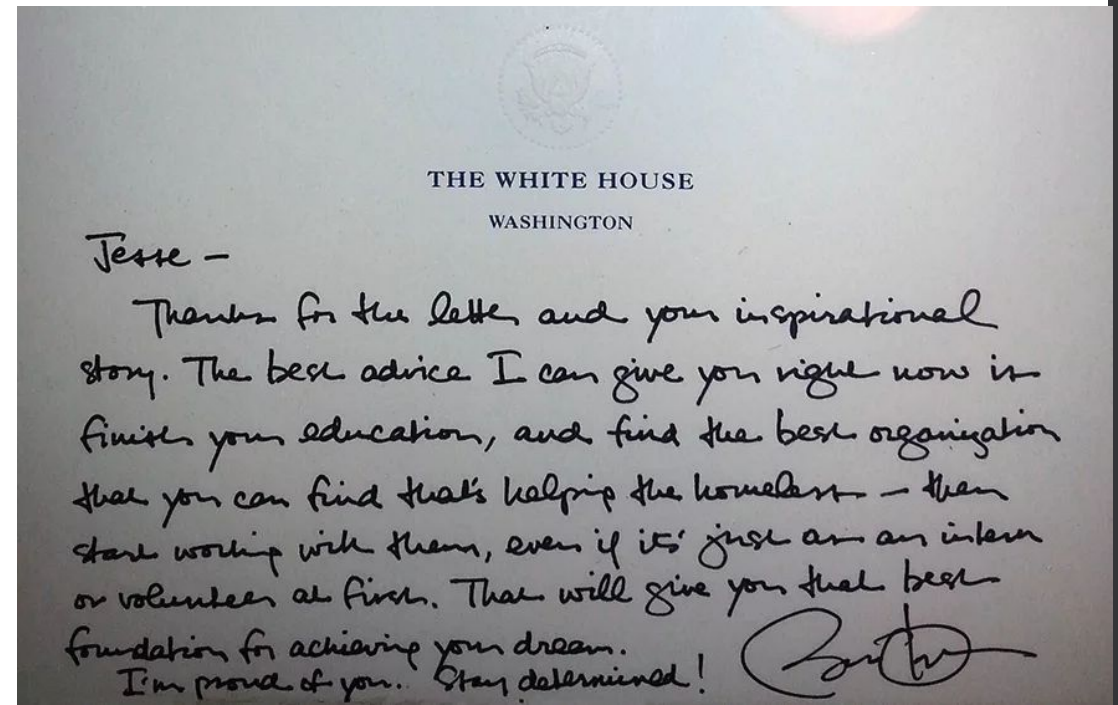 THE WHITE HOUSE
WASHINGTON
Jesse –
Thanks for the letter and your inspirational
story. The best advice I can give you right now is
finish your education, and find the best organization
that you can find that's helping the homeless – then
start working with them, even if it's just as an intern
or volunteer at first. That will give you that best
foundation for achieving your dream.
I'm proud of you. Stay determined!